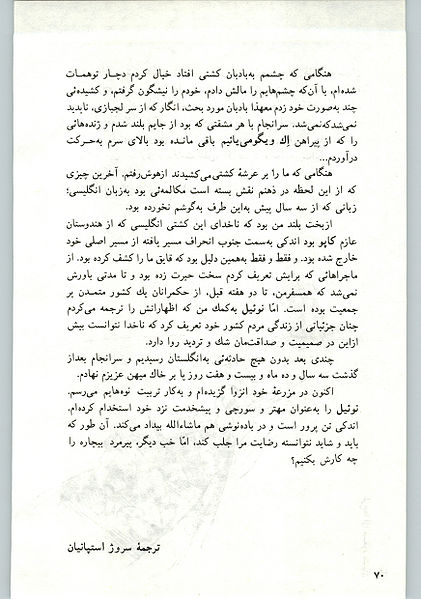 هنگامی که چشمم به‌بادبان کشتی افتاد خیال کردم دچار توهمات
شده‌ام، با آن‌که چشم‌هایم را مالش دادم، خودم را نیشگون گرفتم، و کشیده‌ئی
چند به‌صورت خود زدم معهذا بادبان مورد بحث، انگار که از سر لجبازی، ناپدید
نمی‌شدکه‌نمی‌شد. سرانجام با هر مشقتی که بود از جایم بلند شدم و ژنده‌هائی
را که از پیراهن اِك ویگومی‌پائیم باقی مانده بود بالای سرم به‌حرکت
درآوردم...
هنگامی که ما را بر عرشهٔ کشتی‌می‌کشیدند ازهوش‌رفتم. آخرین چیزی
که از این لحظه در ذهنم نقش بسته است مکالمه‌ئی بود به‌زبان انگلیسی؛
زبانی که از سه سال پیش به‌این طرف به‌گوشم نخورده بود.
ازبخت بلند من بود که ناخدای این کشتی انگلیسی که از هندوستان
عازم کاپو بود اندکی به‌سمت جنوب انحراف مسیر یافته از مسیر اصلی خود
خارج شده بود. و فقط و فقط به‌همین دلیل بود که قایق ما را کشف کرده بود. از
ماجراهائی که برایش تعریف کردم سخت حیرت زده بود و تا مدتی باورش
نمی‌شد که همسفرمن، تا دو هفته قبل، از حکمرانان یك کشور متمدن پر
جمعیت بوده است. امّا نوئیل به‌کمك من که اظهاراتش را ترجمه می‌کردم
چنان جزئیاتی از زندگی مردم کشور خود تعریف کرد که ناخدا نتوانست بیش
ازاین در صمیمیت و صداقت‌مان شك و تردید روا دارد.
چندی بعد بدون هیچ حادثه‌ئی به‌انگلستان رسیدیم و سرانجام بعداز
گذشت سه سال و ده ماه و بیست و هفت روز پا بر خاك میهن عزیزم نهادم.
اکنون در مزرعهٔ خود انزوا گزیده‌ام و به‌کار تربیت نوه‌هایم می‌رسم.
نوئیل را به‌عنوان مهتر و سورچی و پیشخدمت نزد خود استخدام کرده‌ام.
اندکی تن پرور است و در باده‌نوشی هم ماشاءالله بیداد می‌کند. آن طور که
باید و شاید نتوانسته رضایت مرا جلب کند، امّا خب دیگر، پیرمرد بیچاره را
چه کارش بکنیم؟
ترجمهٔ سروژ استپانیان
۷۰